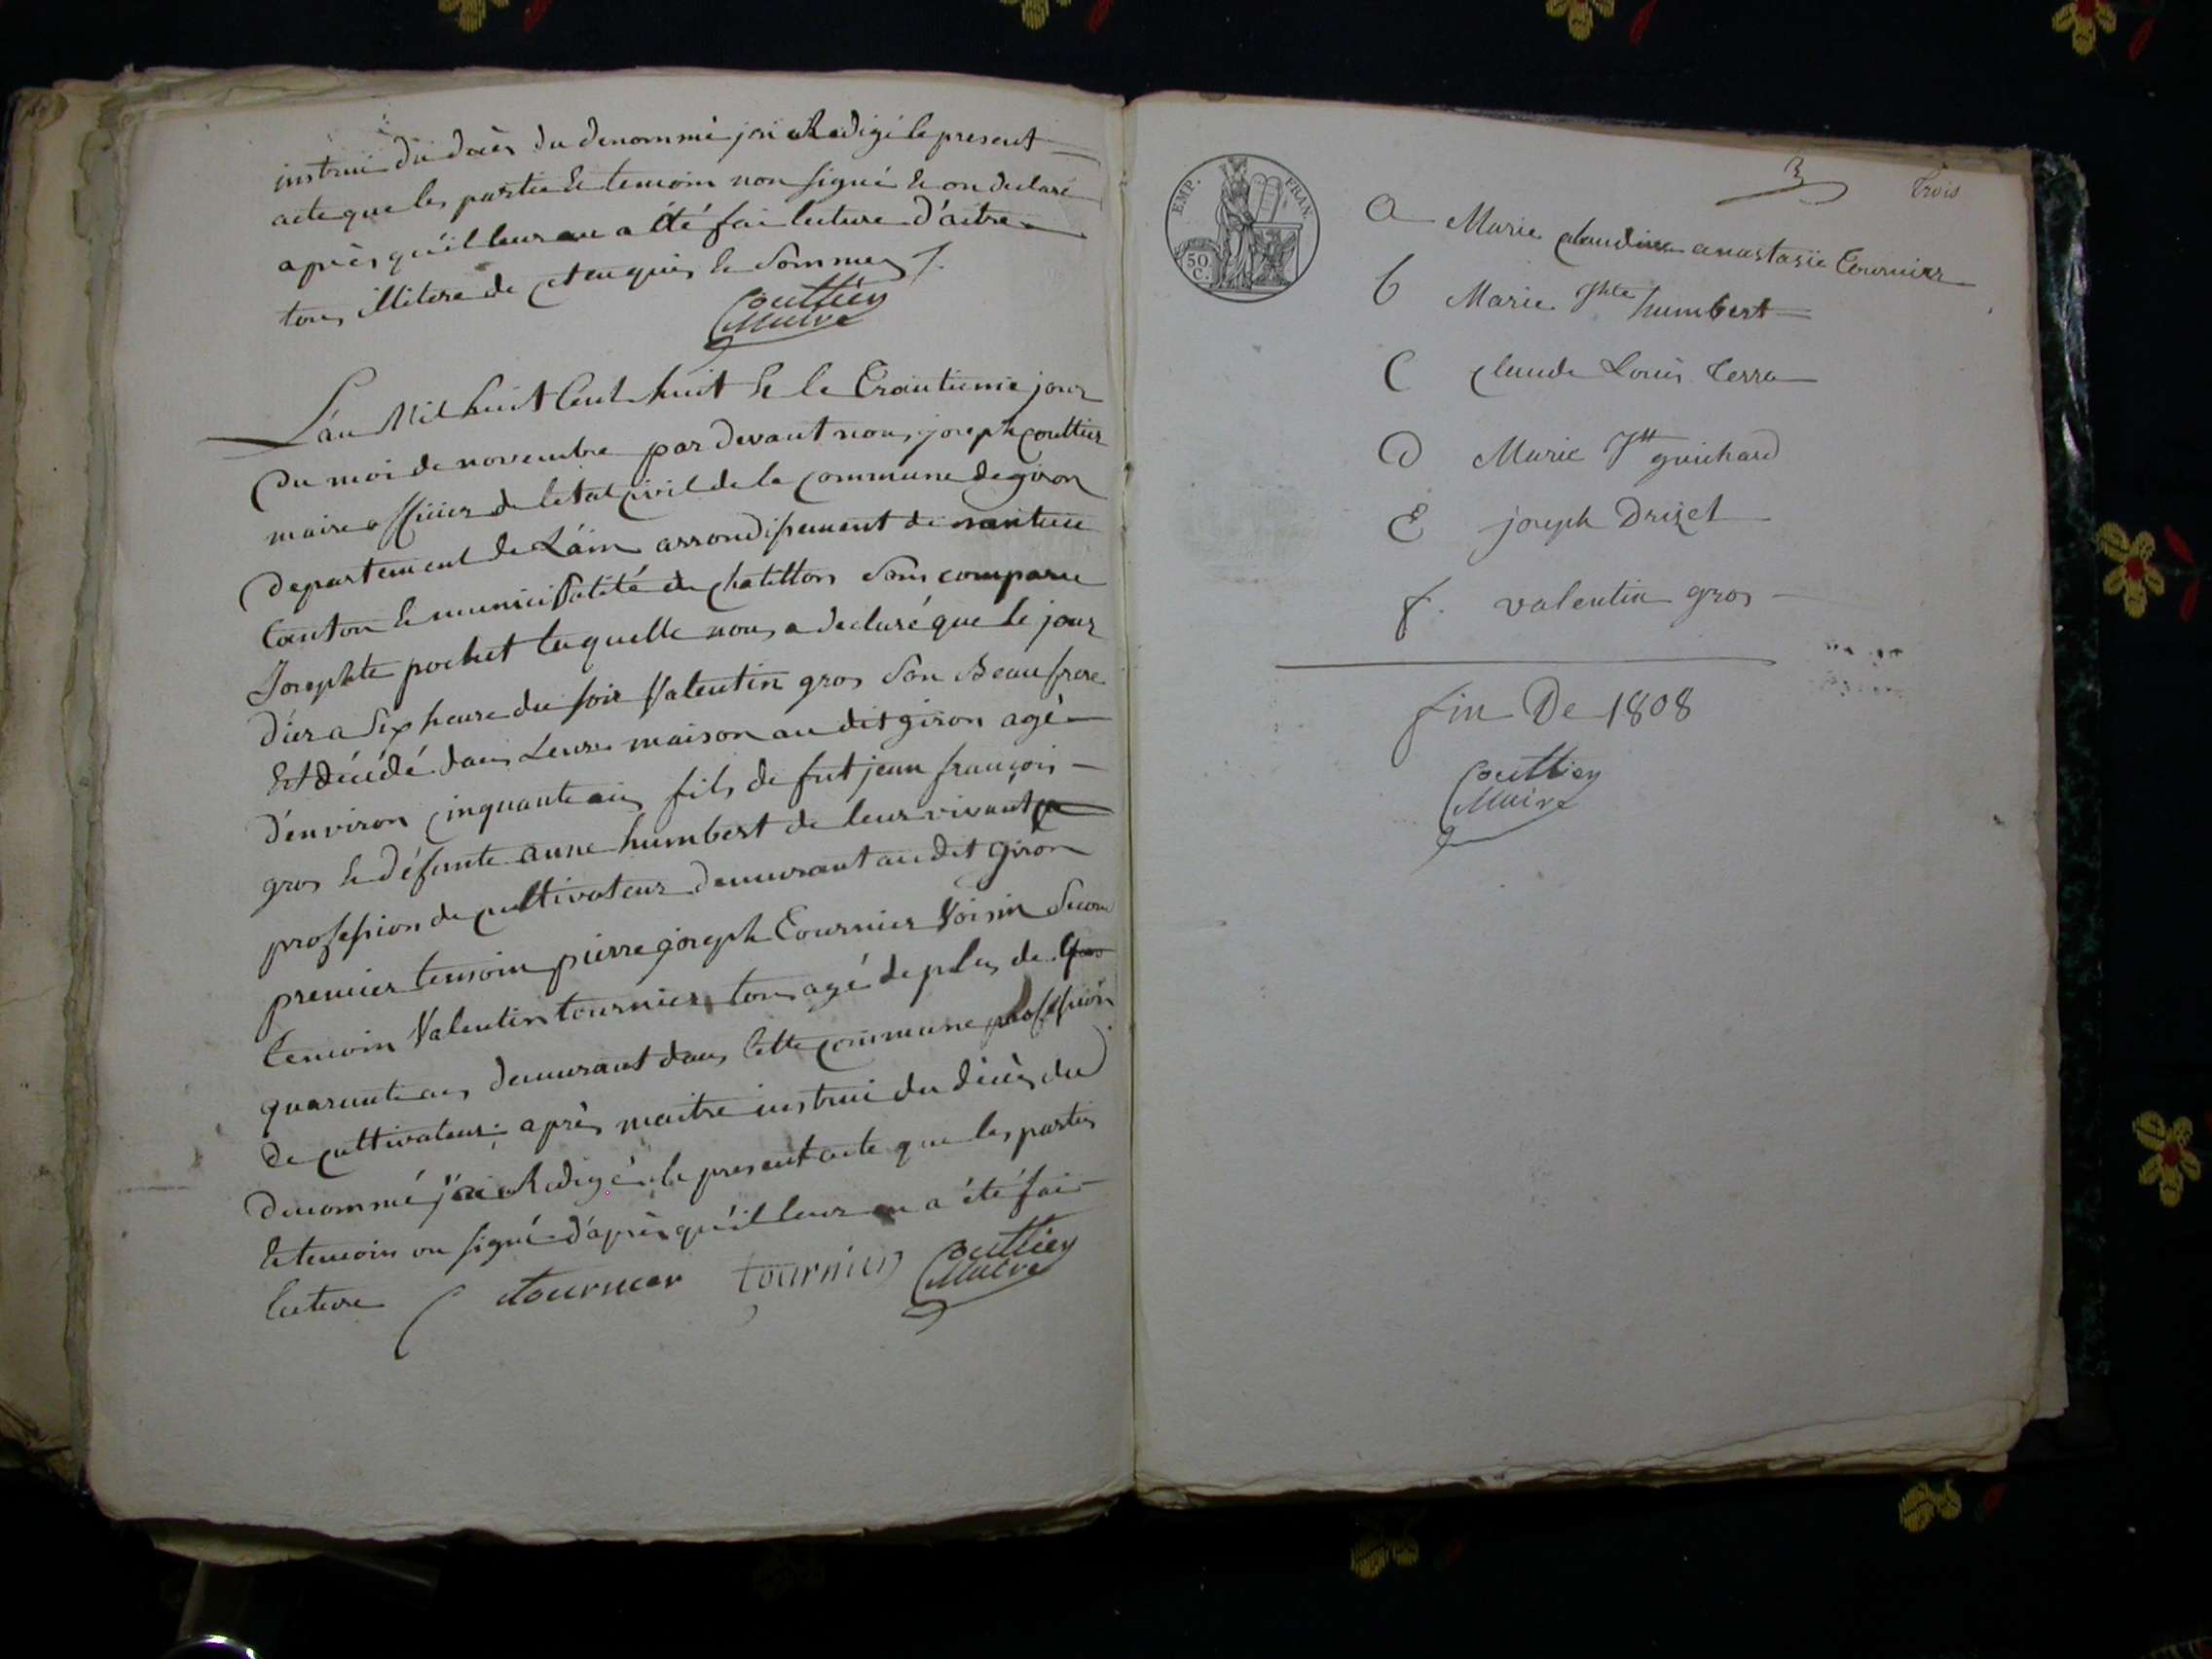 instrui du décès du denommé jai Redigé le present
acte que les partie & temoin non signé & on declaré
après qu'il leur au a été fai lecture d'aitre
tous illitere de ce enquis & sommes f.
Couttier
Maire
L'an Mil huit Cent huit & le Trantieme jour
Du moi de novembre par devant nous joseph Couttier
maire officier de letat civil de la commune de giron
Departement de L'ain arrondissement de nantua
Canton & municipalité de chatillon Sont comparu
Josephte pochet laquelle nous a declaré que le jour
d'ier a six heure du soir Valentin gros son Beaufrere
Est décédé dans Leure maison au dit giron agé
d'environ cinquante ans fils de fut jean françois
gros & défunte anne humbert de leur vivant
profession de cultivateur demeurant au dit giron
premier temoin pierre joseph Tournier Voisin Secon
temoin Valentin tournier tous agé de plus de
quarante ans demeurant dans cette commune profession
de cultivateur après maitre instrui du décès du
denommé j'ai Redigé le present acte que les parties
& temoin on signé d'après qu'il leur an a été fai
lecture tournier tournier Couttier
Maire
EMP. FRAN.
50 C.
3 Trois
a Marie claudine anastasie Tournier
b Marie Jhte humbert
C claude Louis Terra
D Marie Jtt guichard
E joseph Drizet
f. valentin gros
fin De 1808
Couttier
Maire